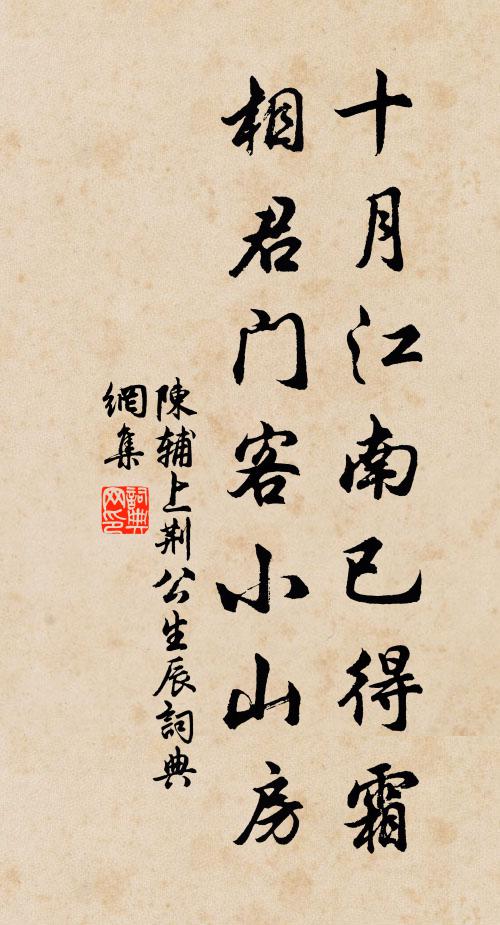 十月江南已得霜
相君門客小山房
陳輔上荆公生辰詞典
網集
詞典
网印